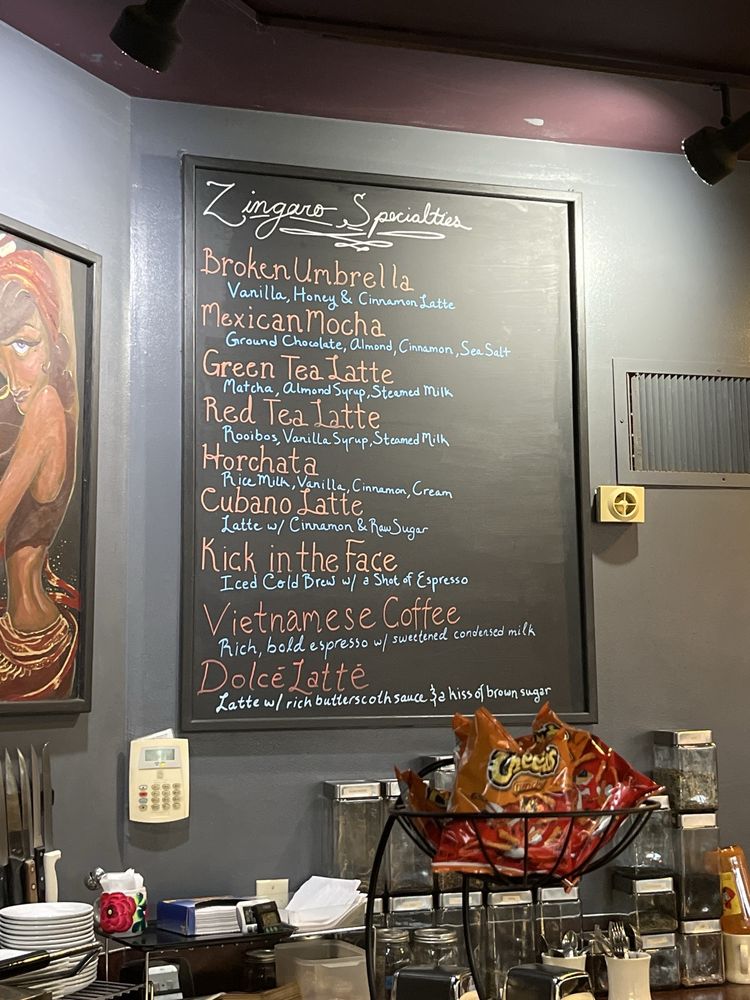 Zingaro Specialties
Broken Umbrella
Vanilla, Honey & Cinnamon Latte
Mexican Mocha
Ground Chocolate, Almond, Cinnamon, Sea Salt
Green Tea Latte
Matcha, Almond Syrup, Steamed Milk
Red Tea Latte
Rooibos, Vanilla Syrup, Steamed Milk
Horchata
Rice Milk, Vanilla, Cinnamon, Cream
Cubano Latte
Latte w/ Cinnamon & Raw Sugar
Kick in the Face
Iced Cold Brew w/ a Shot of Espresso
Vietnamese Coffee
Rich, bold espresso w/ sweetened condensed milk
Dolcé Latté
Latte w/ rich butterscoth sauce & a kiss of brown sugar
Cheetos